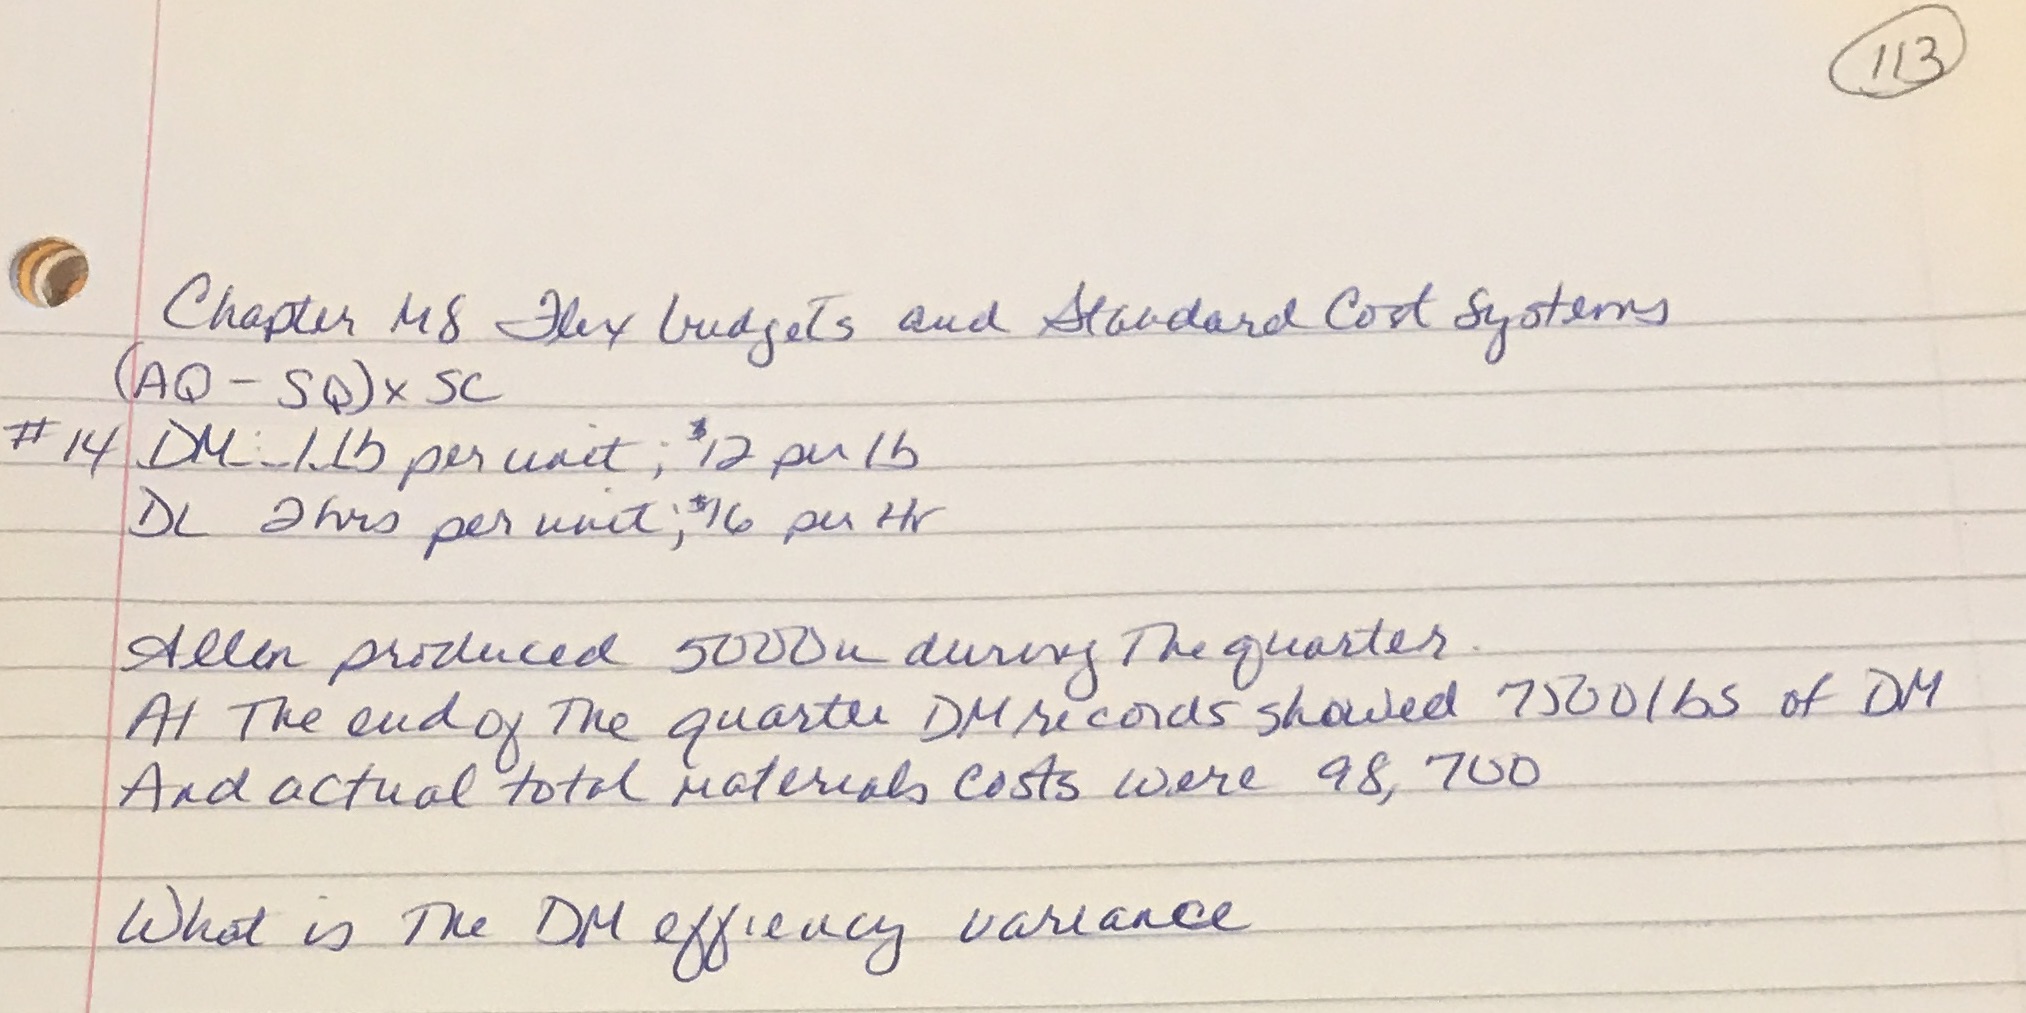 113
Chapter M8 Flex budgets and Standard Cost Systems
(AQ - SQ) x SC
#14 DM: 1 lb per unit; $12 per lb
DL 2hrs per unit; $16 per Hr
Allen produced 5000u during The quarter.
At The end of The quarter DM records showed 7500 lbs of DM
And actual total materials costs were 98,700
What is The DM effiency variance